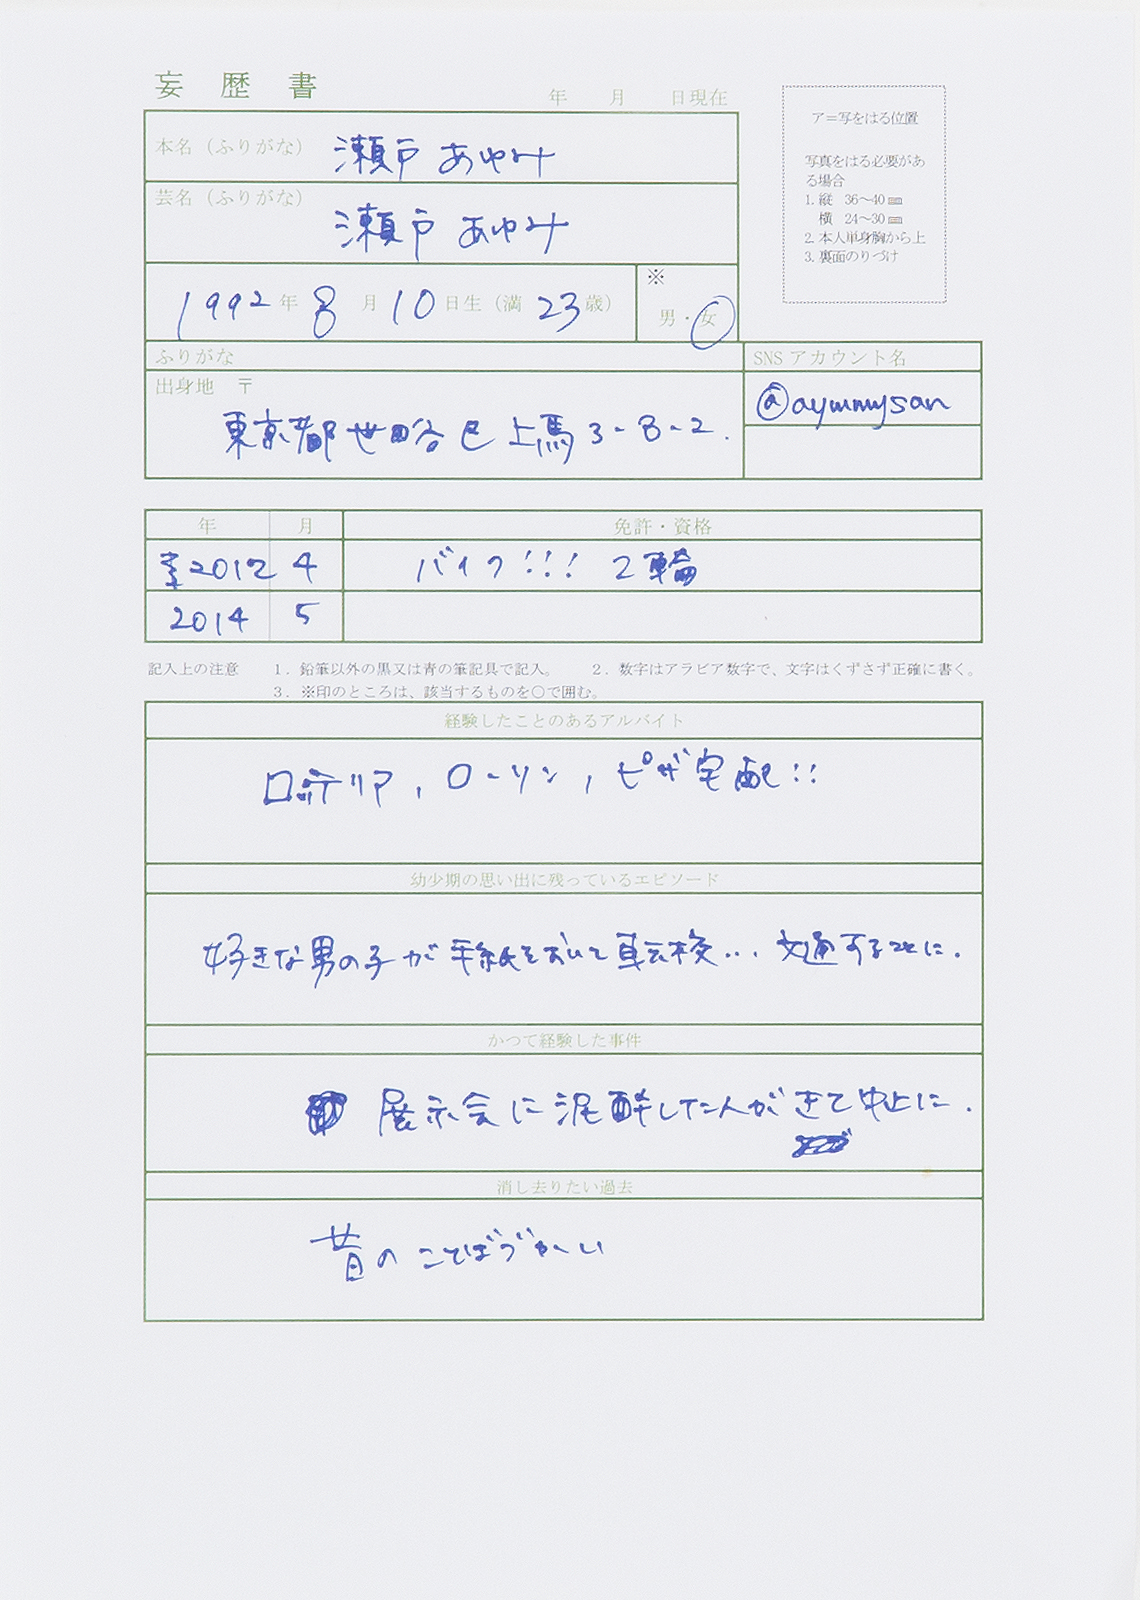 妄歴書
年 月 日現在
ア=写をはる位置
写真をはる必要があ
る場合
1. 縦 36〜40㎜
横 24〜30㎜
2. 本人単身胸から上
3. 裏面のりづけ
本名（ふりがな） 瀬戸 あゆみ
芸名（ふりがな） 瀬戸 あゆみ
1992年 8月 10日生（満 23歳）
※
男・女
ふりがな
SNS アカウント名
出身地 〒
@aymmysan
東京都世田谷区上馬3-8-2.
年 月 免許・資格
2012 4 バイク!!! 2輪
2014 5
記入上の注意 1. 鉛筆以外の黒又は青の筆記具で記入。 2. 数字はアラビア数字で、文字はくずさず正確に書く。
3. ※印のところは、該当するものを○で囲む。
経験したことのあるアルバイト
ロッテリア, ローソン, ピザ宅配!!
幼少期の思い出に残っているエピソード
好きな男の子が手紙をおいて転校... 文通することに.
かつて経験した事件
展示会に泥酔した人がきて中止に.
消し去りたい過去
昔のことばづかい